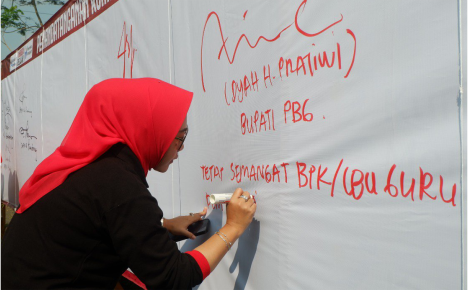 (DYAH H. PRATIWI)
BUPATI PBG.
TETAP SEMANGAT BPK/IBU GURU